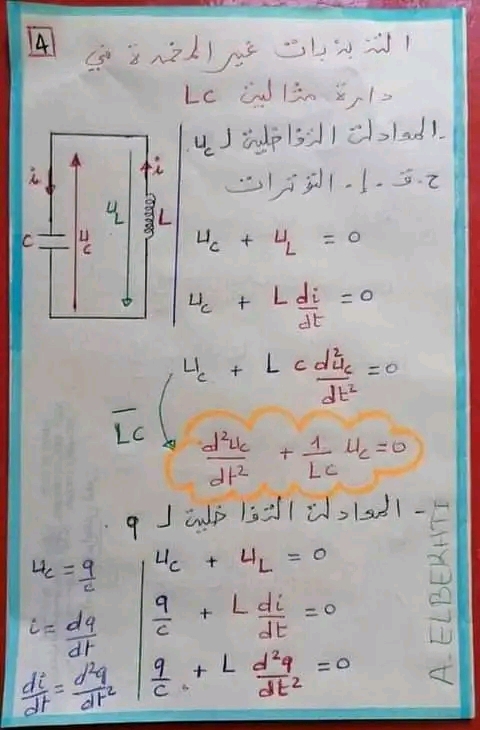 4
التذبذبات غير المخمدة في
دارة مثالية LC
- المعادلة التفاضلية ل u_C
ح. ق. إ. التوترات
i
i
C
u_C
u_L
L
u_C + u_L = 0
u_C + L di/dt = 0
u_C + L C d²u_C/dt² = 0
LC
d²u_C/dt² + 1/LC u_C = 0
- المعادلة التفاضلية ل q
u_C = q/C
u_C + u_L = 0
i = dq/dt
q/C + L di/dt = 0
di/dt = d²q/dt²
q/C + L d²q/dt² = 0
A. ELBEKHTI